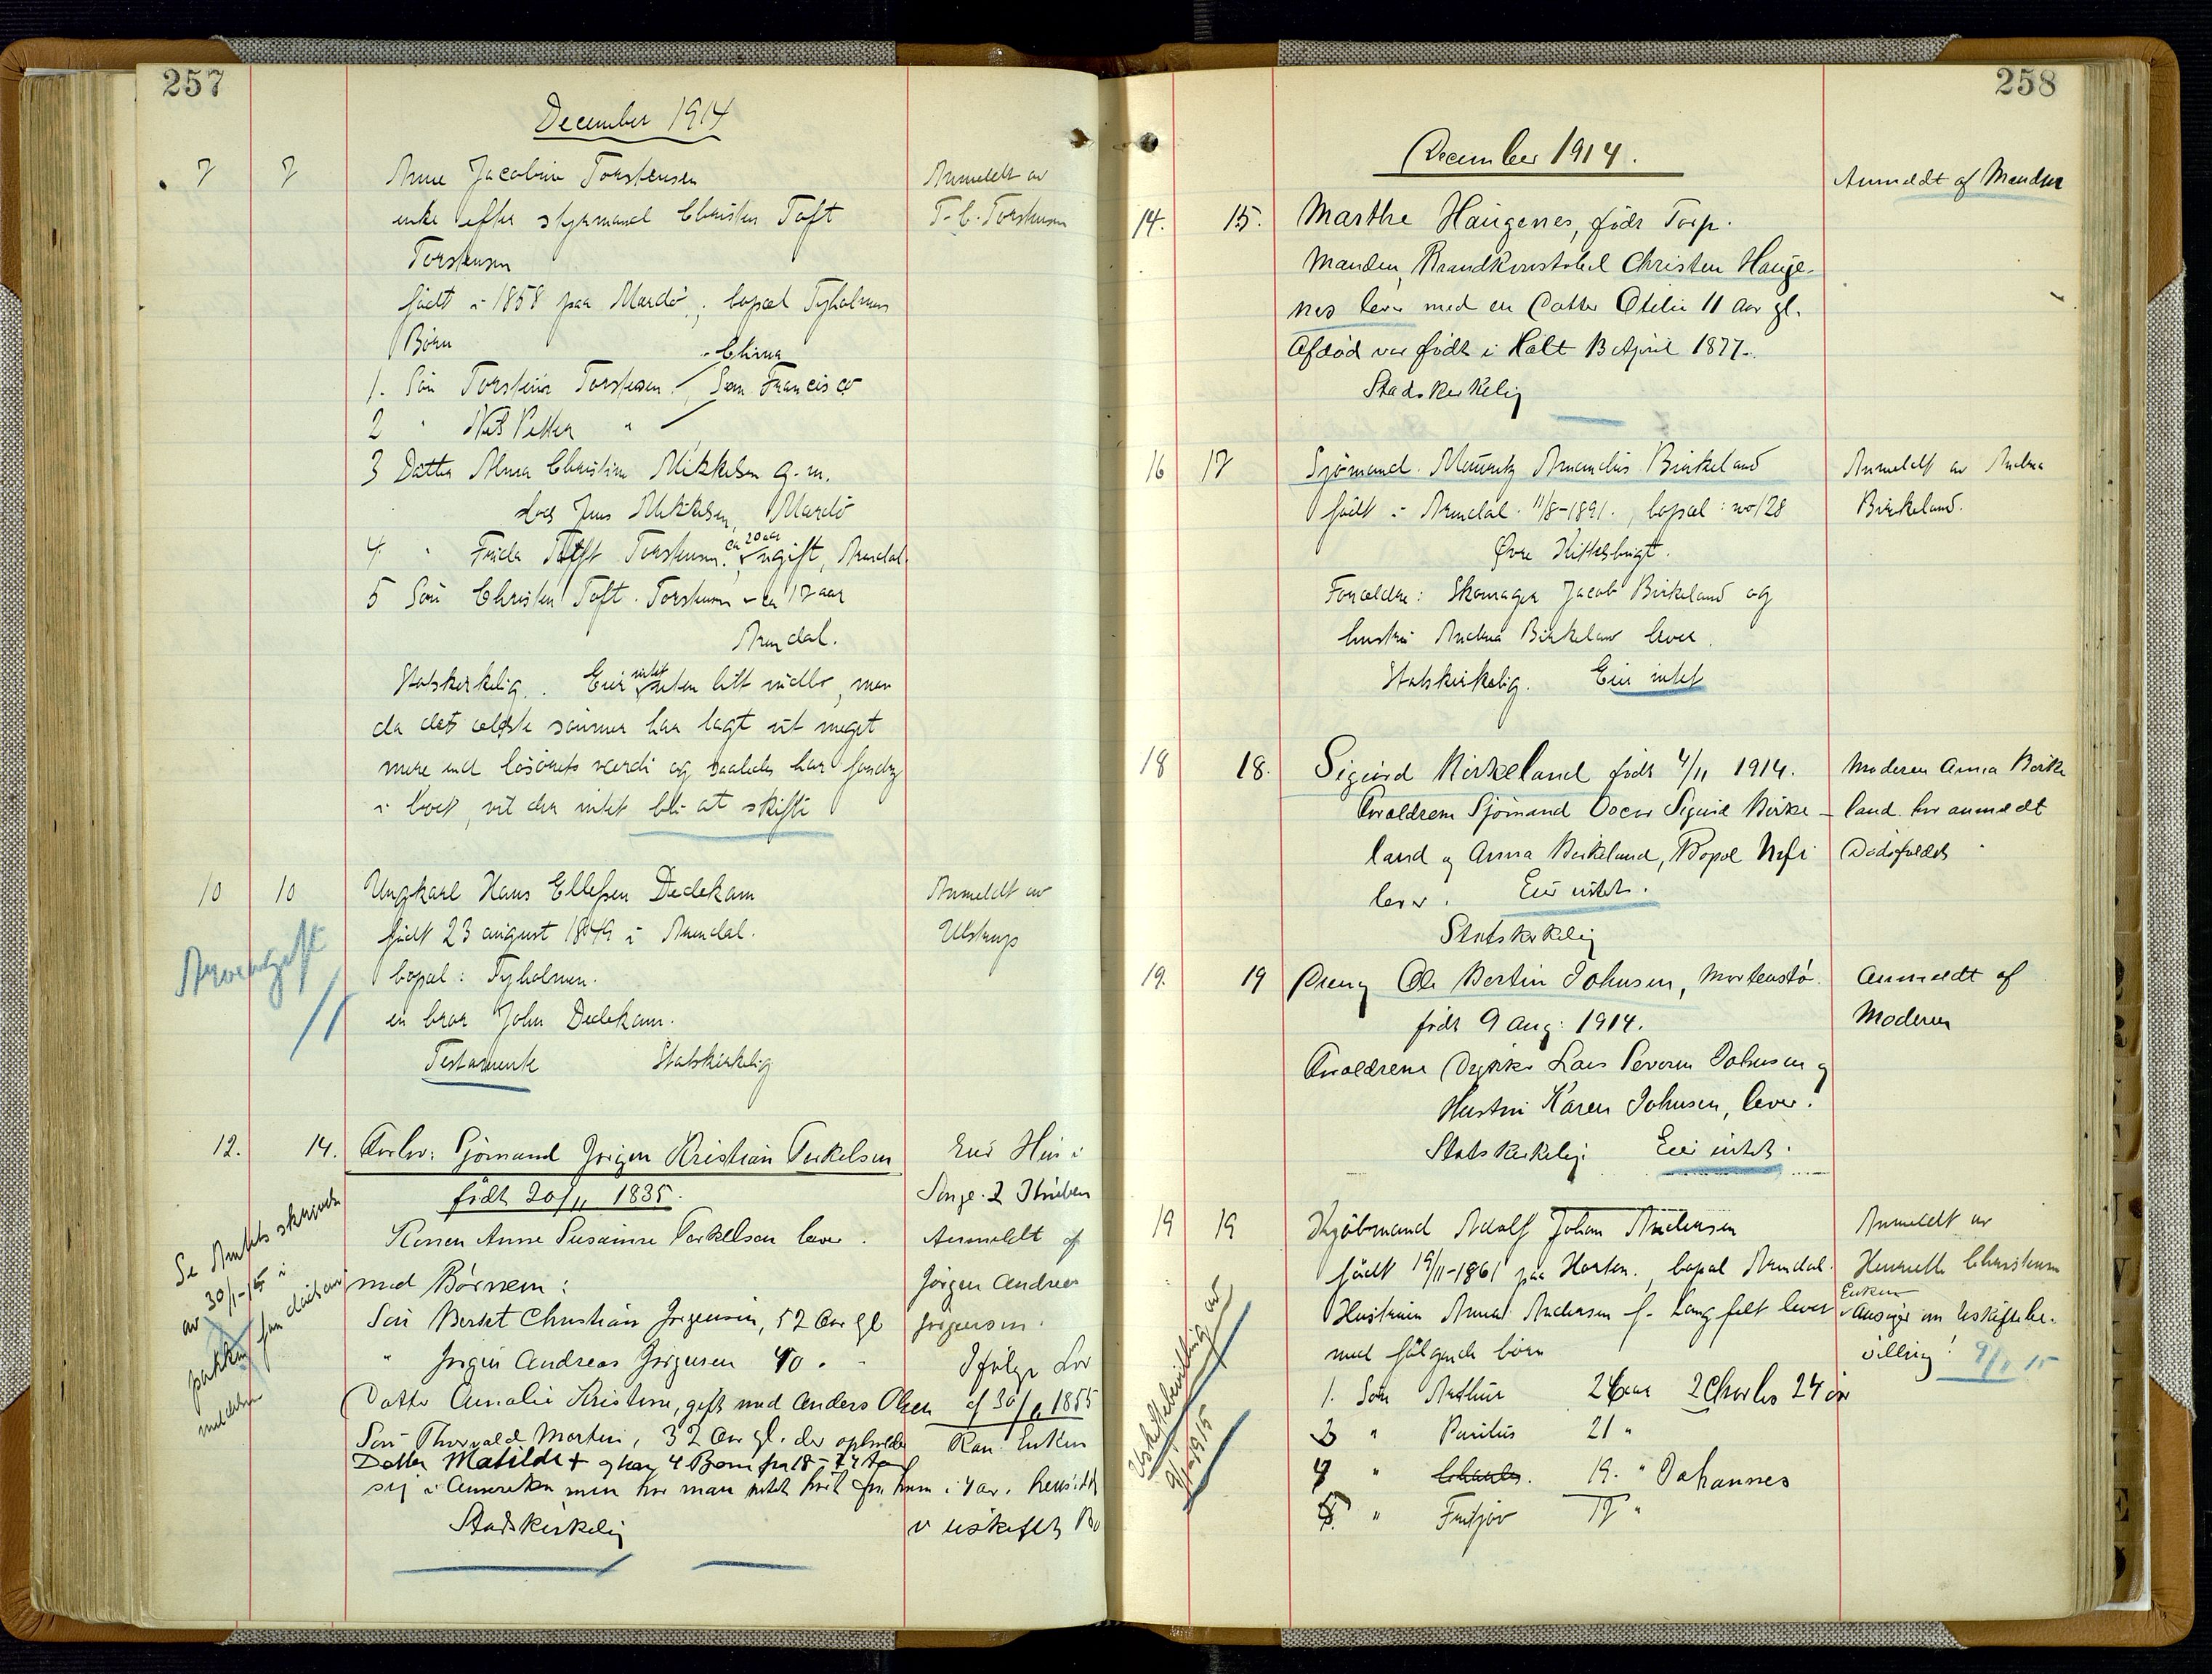 257
December 1914
7 7 Anne Jacobine Torstensen Anmeldt av
enke efter styrmand Christen Toft T. C. Torstensen
Torstensen
født i 1858 paa Mardø, bopæl Tyholmen
Børn
i China
1. Søn Torstein Torstensen San Francisco
2 " Nils Petter "
3 Datter Alma Christine Mikkelsen g. m.
Lods Jens Mikkelsen, Mardø
4. " Frida Toft Torstensen ca 20 aar ugift, Arendal.
5 Søn Christen Toft Torstensen - ca 17 aar
Arendal.
Statskirkelig. Eier intet uten litt indbo, men
da de ældste sønner har lagt ut meget
mere end løsørets værdi og saaledes har fordring
i boet, vil der intet bli at skifte
10 10 Ungkarl Hans Ellefsen Dedekam Anmeldt av
født 23 august 1849 i Arendal. Ulstrup
Arveavgift
bopæl: Tyholmen.
en bror John Dedekam.
Testamente Statskirkelig
12. 14. Forhv: Sjömand Jörgen Kristian Terkelsen Eier Hus i
födt 20/11 1835.
Konen Anne Susanne Terkelsen lever. Anmeldt af
med Börnene: Jörgen Andreas
Sön Berkt Christian Jörgensen, 52 Aar gl Jörgensen.
" Jörgen Andreas Jörgensen 40 " Ifölge Lov
Datter Amalie Kristine, gift med Anders Olsen af 30/6 1855
Sön Thorvald Martin, 32 Aar gl. der opholder Kan Enken
Datter Matilde + og har 4 Børn fra 18 - 24 Aar
sig i Amerika, men har man intet hört fra ham i 4 aar. hensidde
Stadskirkelig i uskiftet Bo
Se Amtets skrivelse
av 30/1-15 i
pakken
258
December 1914.
Anmeldt af Manden
14. 15. Marthe Haugenes, födt Torp.
Manden, Brandkonstabel Christen Hauge-
nes lever med en Datter Otelie 11 Aar gl.
Afdöd var födt i Holt 13 April 1877.
Stadskirkelig
16 17 Sjømand Mauritz Amandus Birkeland Anmeldt av Andrea
født i Arendal 11/8-1891., bopæl: no 128 Birkeland.
Øvre Kittelsbugt.
Forældre: Skomager Jacob Birkeland og
hustru Andrea Birkeland lever.
Statskirkelig. Eier intet
18 18. Sigurd Birkeland födt 4/11 1914. Moderen Anna Birke
Forældrene Sjömand Oscar Sigurd Birke- land har anmeldt
land og Anna Birkeland, Bopæl Dödsfaldet
lever. Eier intet.
Statskirkelig
19. 19 Dreng Ole Bertin Johnsen, Anmeldt af
födt 9 Aug: 1914. Moderen
Forældrene Dykker Lars Severin Johnsen og
Hustru Karen Johnsen, lever.
Statskirkelig. Eier intet.
19 19 Kjøbmand Adolf Johan Andersen Anmeldt av
født 19/11-1861 paa Horten., bopæl Arendal. Henriette Christensen
Hustruen Anna Andersen f. Langfelt lever Enken Ansøger om Uskiftebe-
med følgende børn villing! 9/1 15
1. Søn Arthur 26 aar 2 Charles 24 år
3 " 21 "
4 " Charles. 19. " Johannes
5. " Fritjov 17 "
Uskiftebevilling av
9/1-1915